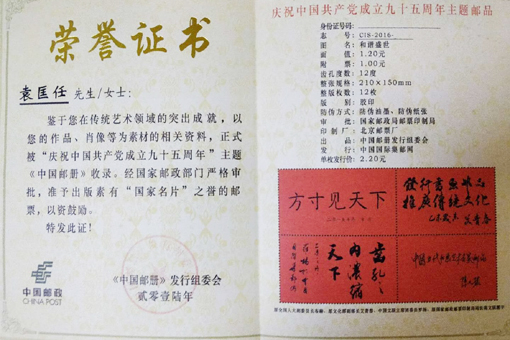 荣誉证书
袁匡任 先生/女士:
鉴于您在传统艺术领域的突出成就,以
您的作品、肖像等为素材的相关资料,正式
被“庆祝中国共产党成立九十五周年”主题
《中国邮册》收录。经国家邮政部门严格审
批,准予出版素有“国家名片”之誉的邮
票,以资鼓励。
特发此证!
中国邮政
CHINA POST
《中国邮册》发行组委会
贰零壹陆年
庆祝中国共产党成立九十五周年主题邮品
身份证号码:
志号: CIS-2016-
图名: 和谐盛世
面值: 1.20元
附票: 1.00元
齿孔度数: 12度
整张规格: 210×150mm
整版枚数: 12枚
版别: 胶印
防伪方式: 防伪油墨、防伪纸张
审批: 国家邮政局邮票印制局
印制: 北京邮票厂
出品: 中国邮册发行组委会
发行: 中国国际集邮网
单枚发行价: 2.20元
方寸见天下
齿孔之
内浓缩
天下